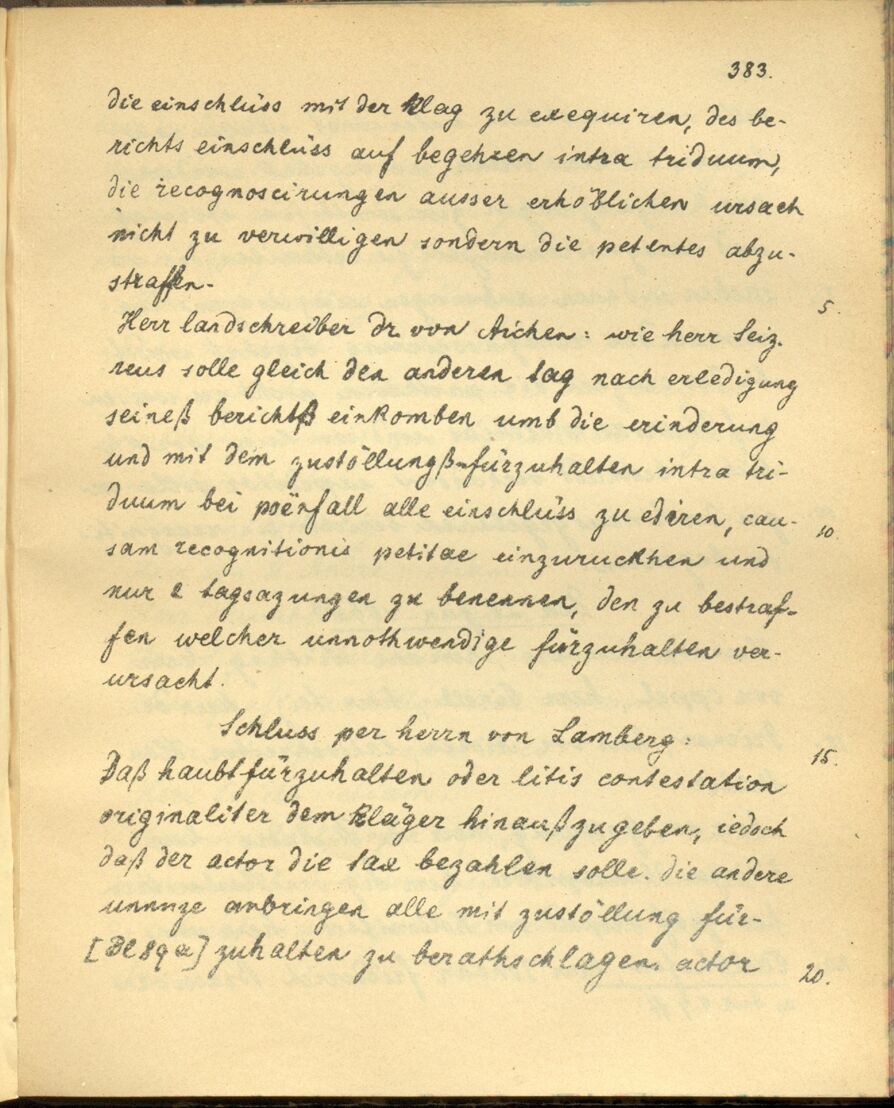 383.
die einschlüss mit der Klag zu exequiren, des be-
richts einschlüss auf begehren intra triduum,
die recognoscirungen ausser erhöblichen ursach
nicht zu verwilligen sondern die petentes abzu-
straffen.
5.
Herr landschreiber dr. von Aichen: wie herr Seiz.
reus solle gleich den anderen tag nach erledigung
seineß berichtß einkomben umb die erinderung
und mit dem zustöllungß-fürzuhalten intra tri-
duum bei poënfall alle einschlüss zu ediren, cau-
10.
sam recognitionis petitae einzuruckhen und
nur 2 tagsazungen zu benennen, den zu bestraf-
fen welcher unnothwendige fürzuhalten ver-
ursacht.
Schluss per herrn von Lamberg:
15.
Daß haubtfürzuhalten oder litis contestation
originaliter dem Kläger hinaußzugeben, iedoch
daß der actor die tax bezahlen solle. die andere
unnuze anbringen alle mit zustöllung für-
[Bl 89a] zuhalten zu berathschlagen. actor
20.